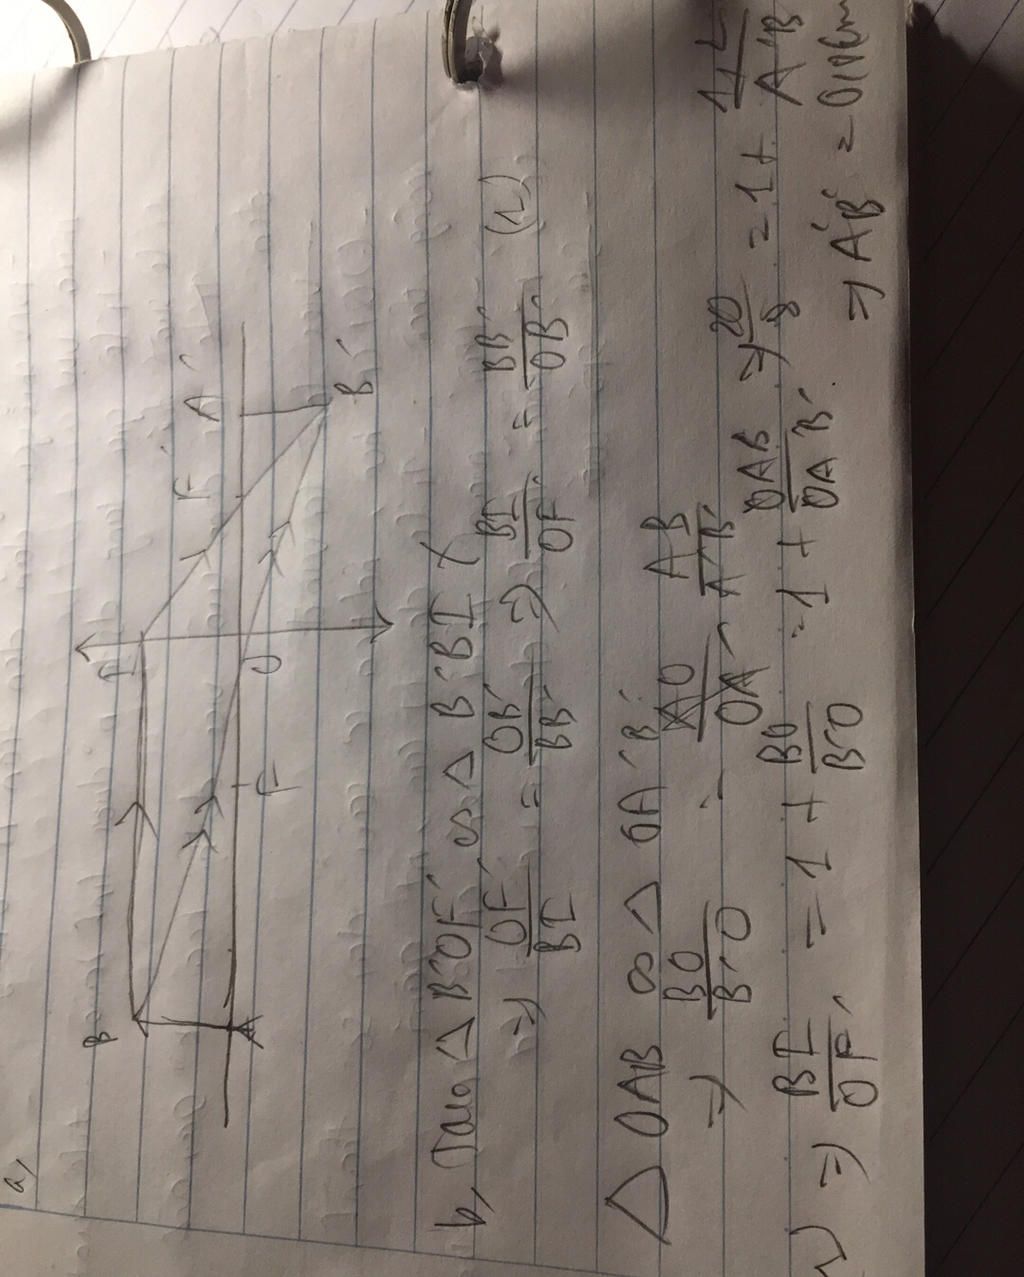 a,
B I F' A'
A F O B'
b, Ta có △ B'OF' ∽ △ B'BI (
=> OF'/BI = OB'/BB' => BI/OF' = BB'/OB' (1)
△ OAB ∽ △ OA'B'
=> BO/B'O = AO/OA' = AB/A'B'
=> BI/OF' = 1 + BO/B'O = 1 + AB/A'B' => 20/8 = 1 + 1
=> A'B' =